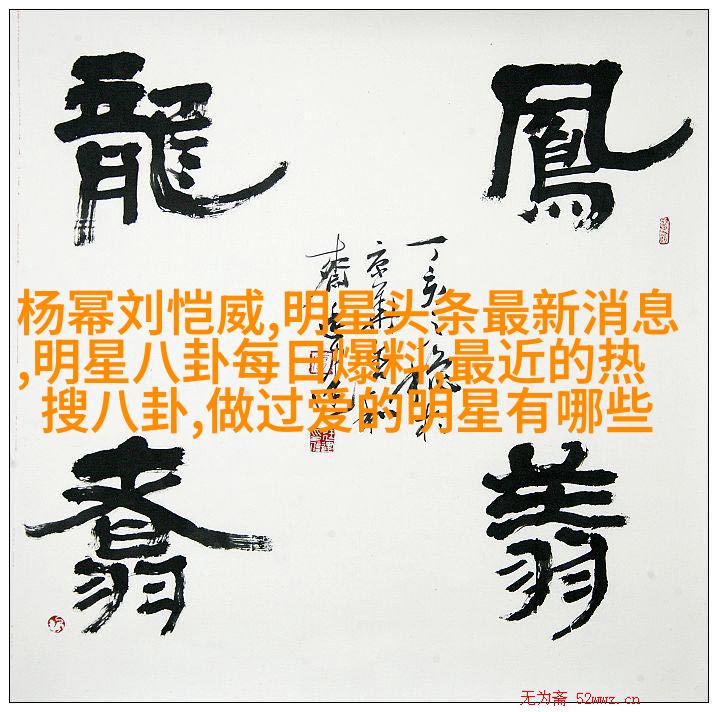 鳳翔
龍翥
丁亥之
杨幂刘恺威,明星头条最新消息
,明星八卦每日爆料,最近的热
搜八卦,做过爱的明星有哪些
无为斋 52wwz.cn